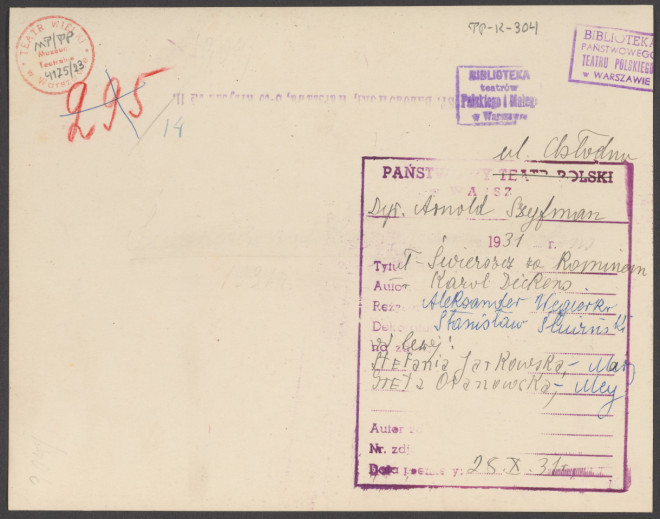 TEATR WIELKI
MT/TP
Muzeum
Teatralne
4125/33
295
14
TP-K-304
BIBLIOTEKA
PAŃSTWOWEGO
TEATRU POLSKIEGO
w WARSZAWIE
BIBLIOTEKA
teatrów
Polskiego i Małego
w Warszawie
ul. Chłodna
PAŃSTWOWY TEATR POLSKI
WARSZ
Dyr. Arnold Szyfman
1931 r.
Tytuł - Świerszcz za Kominem
Autor Karol Dickens
Reż. Aleksander Węgierko
Deko Stanisław Śliwiński
na zdj. od lewej:
Stefania Jarkowska, - Mary
Stefa Oranowska, - Mey
Autor zd
Nr. zdj.
Data premiery: 28.X.31